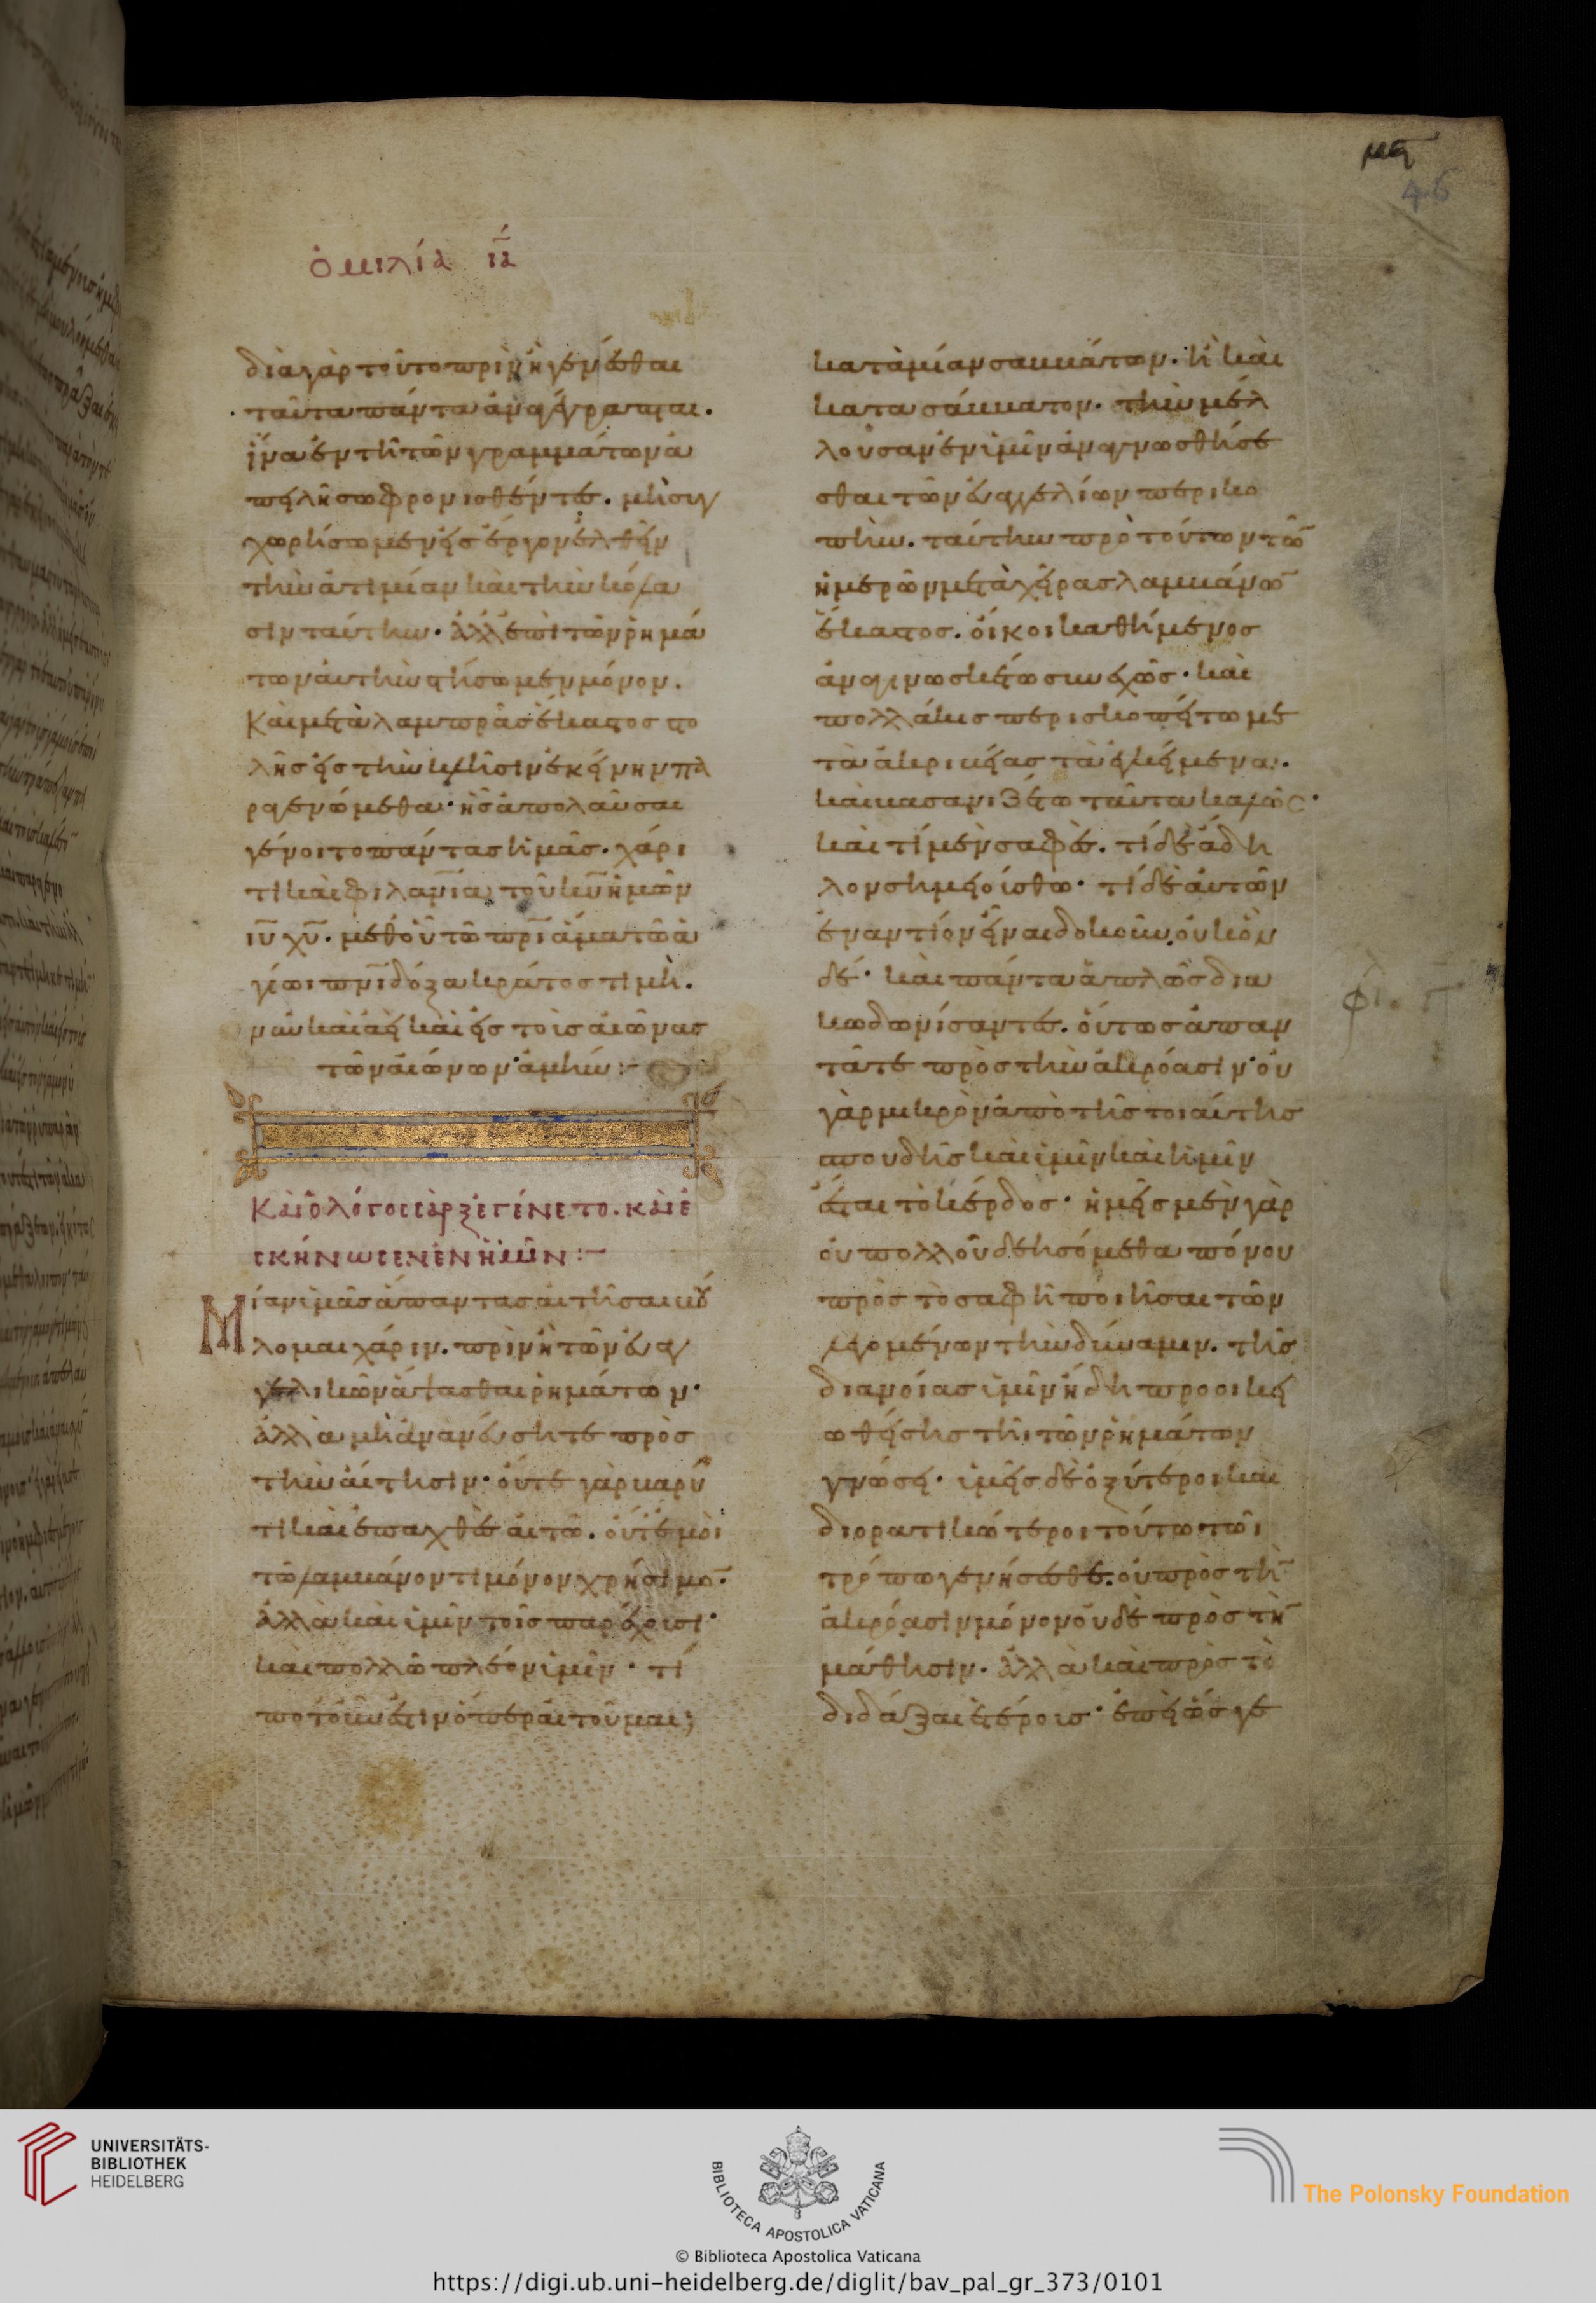 μϛ
46
ὁμιλία ια
διὰ γὰρ τοῦτο πρὶν ἢ γενέσθαι
ταῦτα πάντα ἀναγέγραπται.
ἵνα ἐν τῆ τῶν γραμμάτων ἀ
πειλῆ σωφρονισθέντες. μὴ συγ
χωρήσωμεν εἰς ἔργον ἐλθεῖν
τὴν ἀτιμίαν καὶ τὴν κόλα
σιν ταύτην. ἀλλ' ἐπὶ τῶν ῥημά
των αὐτὴν στήσωμεν μόνον.
Καὶ μετὰ λαμπρᾶς ἕκαστος στο
λῆς εἰς τὴν λῆξιν ἐκείνην πα
ραγενώμεθα· ἧς ἀπολαῦσαι
γένοιτο πάντας ἡμᾶς. χάρι
τι καὶ φιλανία τοῦ κυ ἡμῶν
ιυ χυ. μεθ' οὗ τῶ πρι ἅμα τῶ ἁ
γίωι πνι δόξα κράτος τιμὴ.
νῦν καὶ ἀεὶ καὶ εἰς τοὺς αἰῶνας
τῶν αἰώνων· ἀμήν:-
Καὶ ὁ λόγος σὰρξ ἐγένετο. καὶ ἐ
σκήνωσεν ἐν ἡμῖν:-
Μίαν ὑμᾶς ἅπαντας αἰτῆσαι βού
λομαι χάριν. πρὶν ἢ τῶν εὐαγ
γελικῶν ἅψασθαι ῥημάτων·
ἀλλὰ μὴ ἀνανεύσητε πρὸς
τὴν αἴτησιν· οὔτε γὰρ βαρύ
τι καὶ ἐπαχθὲς αἰτῶ. οὔτ' ἐμοὶ
τῶ λαμβάνοντι μόνον χρήσιμον.
ἀλλὰ καὶ ὑμῖν τοῖς παρέχουσι·
καὶ πολλῶ πλέον ὑμῖν· τί
ποτ' οὖν ἐστιν ὅπερ αἰτοῦμαι;
κατὰ μίαν σαββάτων. ἢ καὶ
κατα σάββατον. τὴν μέλ
λουσαν ἐν ὑμῖν ἀναγνωσθήσε
σθαι τῶν εὐαγγελίων περικο
πὴν. ταύτην πρὸ τούτων τῶν
ἡμερῶν μετὰ χεῖρας λαμβάνων
ἕκαστος. οἴκοι καθήμενος
ἀναγινωσκέτω συνεχῶς· καὶ
πολλάκις περισκοπείτω με
τὰ ἀκριβείας τὰ ἐγκείμενα.
καὶ βασανιζέτω ταῦτα καλῶς·
καὶ τί μὲν σαφὲς. τί δὲ ἄδη
λον σημειούσθω· τί δὲ αὐτῶν
ἐναντίον εἶναι δοκοῦν, οὐκ ὂν
δέ· καὶ πάντα ἁπλῶς δια
κωδωνίσαντες. οὕτως ἀπαν
τᾶτε πρὸς τὴν ἀκρόασιν· οὐ
γὰρ μικρὸν ἀπὸ τῆς τοιαύτης
σπουδῆς καὶ ὑμῖν καὶ ἡμῖν
ἔσται τὸ κέρδος· ἡμεῖς μὲν γὰρ
οὐ πολλοῦ δεησόμεθα πόνου
πρὸς τὸ σαφῆ ποιῆσαι τῶν
λεγομένων τὴν δύναμιν. τῆς
διανοίας ὑμῖν ἤδη προσοικει
ωθείσης τῆι τῶν ῥημάτων
γνώσει· ὑμεῖς δὲ ὀξύτεροι καὶ
διορατικώτεροι τούτω τῶι
τρόπω γενήσεσθε. οὐ πρὸς τὴν
ἀκρόασιν μόνον οὐδὲ πρὸς τὴν
μάθησιν. ἀλλὰ καὶ πρὸς τὸ
διδάξαι ἑτέροις· ἐπεὶ ὥς γε
UNIVERSITÄTS-
BIBLIOTHEK
HEIDELBERG
BIBLIOTECA APOSTOLICA VATICANA
The Polonsky Foundation
© Biblioteca Apostolica Vaticana
https://digi.ub.uni-heidelberg.de/diglit/bav_pal_gr_373/0101